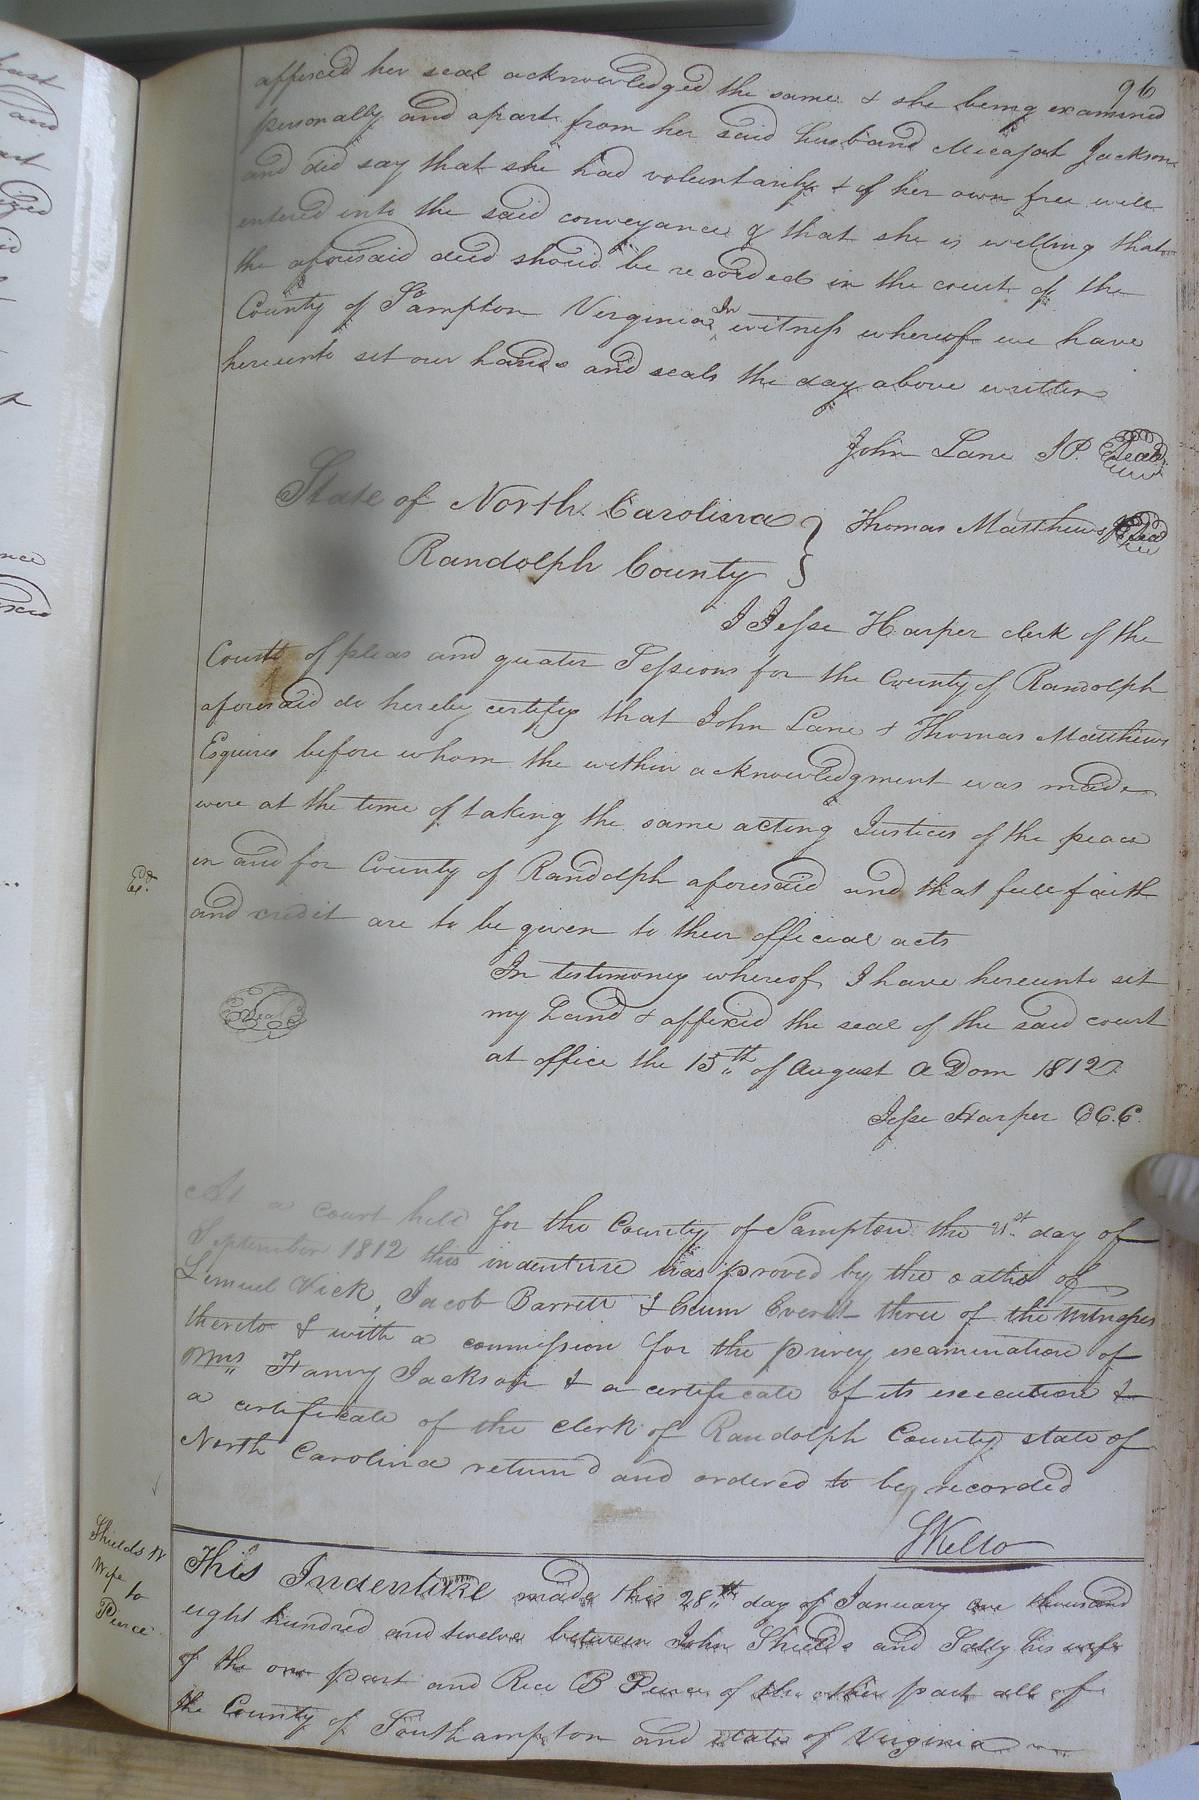 96
affixed her seal acknowledged the same & she being examined
personally and apart from her said husband Micajah Jackson
and did say that she had voluntarily & of her own free will
entered into the said conveyance & that she is willing that
the aforesaid deed should be recorded in the court of the
County of So'ampton Virginia In witness whereof we have
hereunto set our hands and seals the day above written
John Lane JP. Seal
State of North Carolina } Thomas Matthews JP Seal
Randolph County
I Jesse Harper clerk of the
Court of pleas and quater Sessions for the County of Randolph
aforesaid do hereby certify that John Lane & Thomas Matthews
Esquires before whom the within acknowledgment was made
were at the time of taking the same acting Justices of the peace
in and for County of Randolph aforesaid and that full faith
Ex.d
and credit are to be given to their official acts
In testimoney whereof I have hereunto set
Seal
my hand & affixed the seal of the said court
at office the 15th of August A Dom 1812
Jesse Harper C.C.C.
At a court held for the County of So'ampton the 21st day of
September 1812 this indenture was proved by the oaths of
Lemuel Vick, Jacob Barrett & Exum Everit three of the witnesses
thereto & with a commission for the privey examination of
Mrs Fanny Jackson & a certificate of its execution &
a certificate of the clerk of Randolph County state of
North Carolina return'd and ordered to be recorded
SKello
Shields &
Wife
to
Peirce
This Indenture made this 28th day of January one thousand
eight hundred and twelve between John Shields and Sally his wife
of the one part and Rice B Peirce of the other part all of
the County of Southampton and state of Virginia